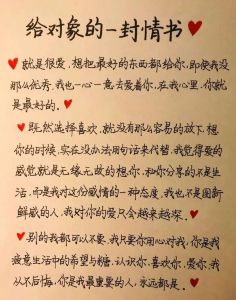 给对象的一封情书
就是很爱,想把最好的东西都给你,即使我没
那么优秀,我也一心一意去爱着你,在我心里,你就
是最好的.
既然选择喜欢,就没有那么容易的放下,想
你的时候,实在没办法用句话来代替,我觉得爱的
感觉就是无缘无故的想你,和你分享的不是生
活,而是我对这份感情的一种态度,我也不是图新
鲜感的人,我对你的爱只会越来越深.
别的我都可以不要,我只要你用心对我,你是我
疲惫生活中的希望与糖,认识你,喜欢你,爱你,我
从不后悔,你是我最重要的人,永远都是.